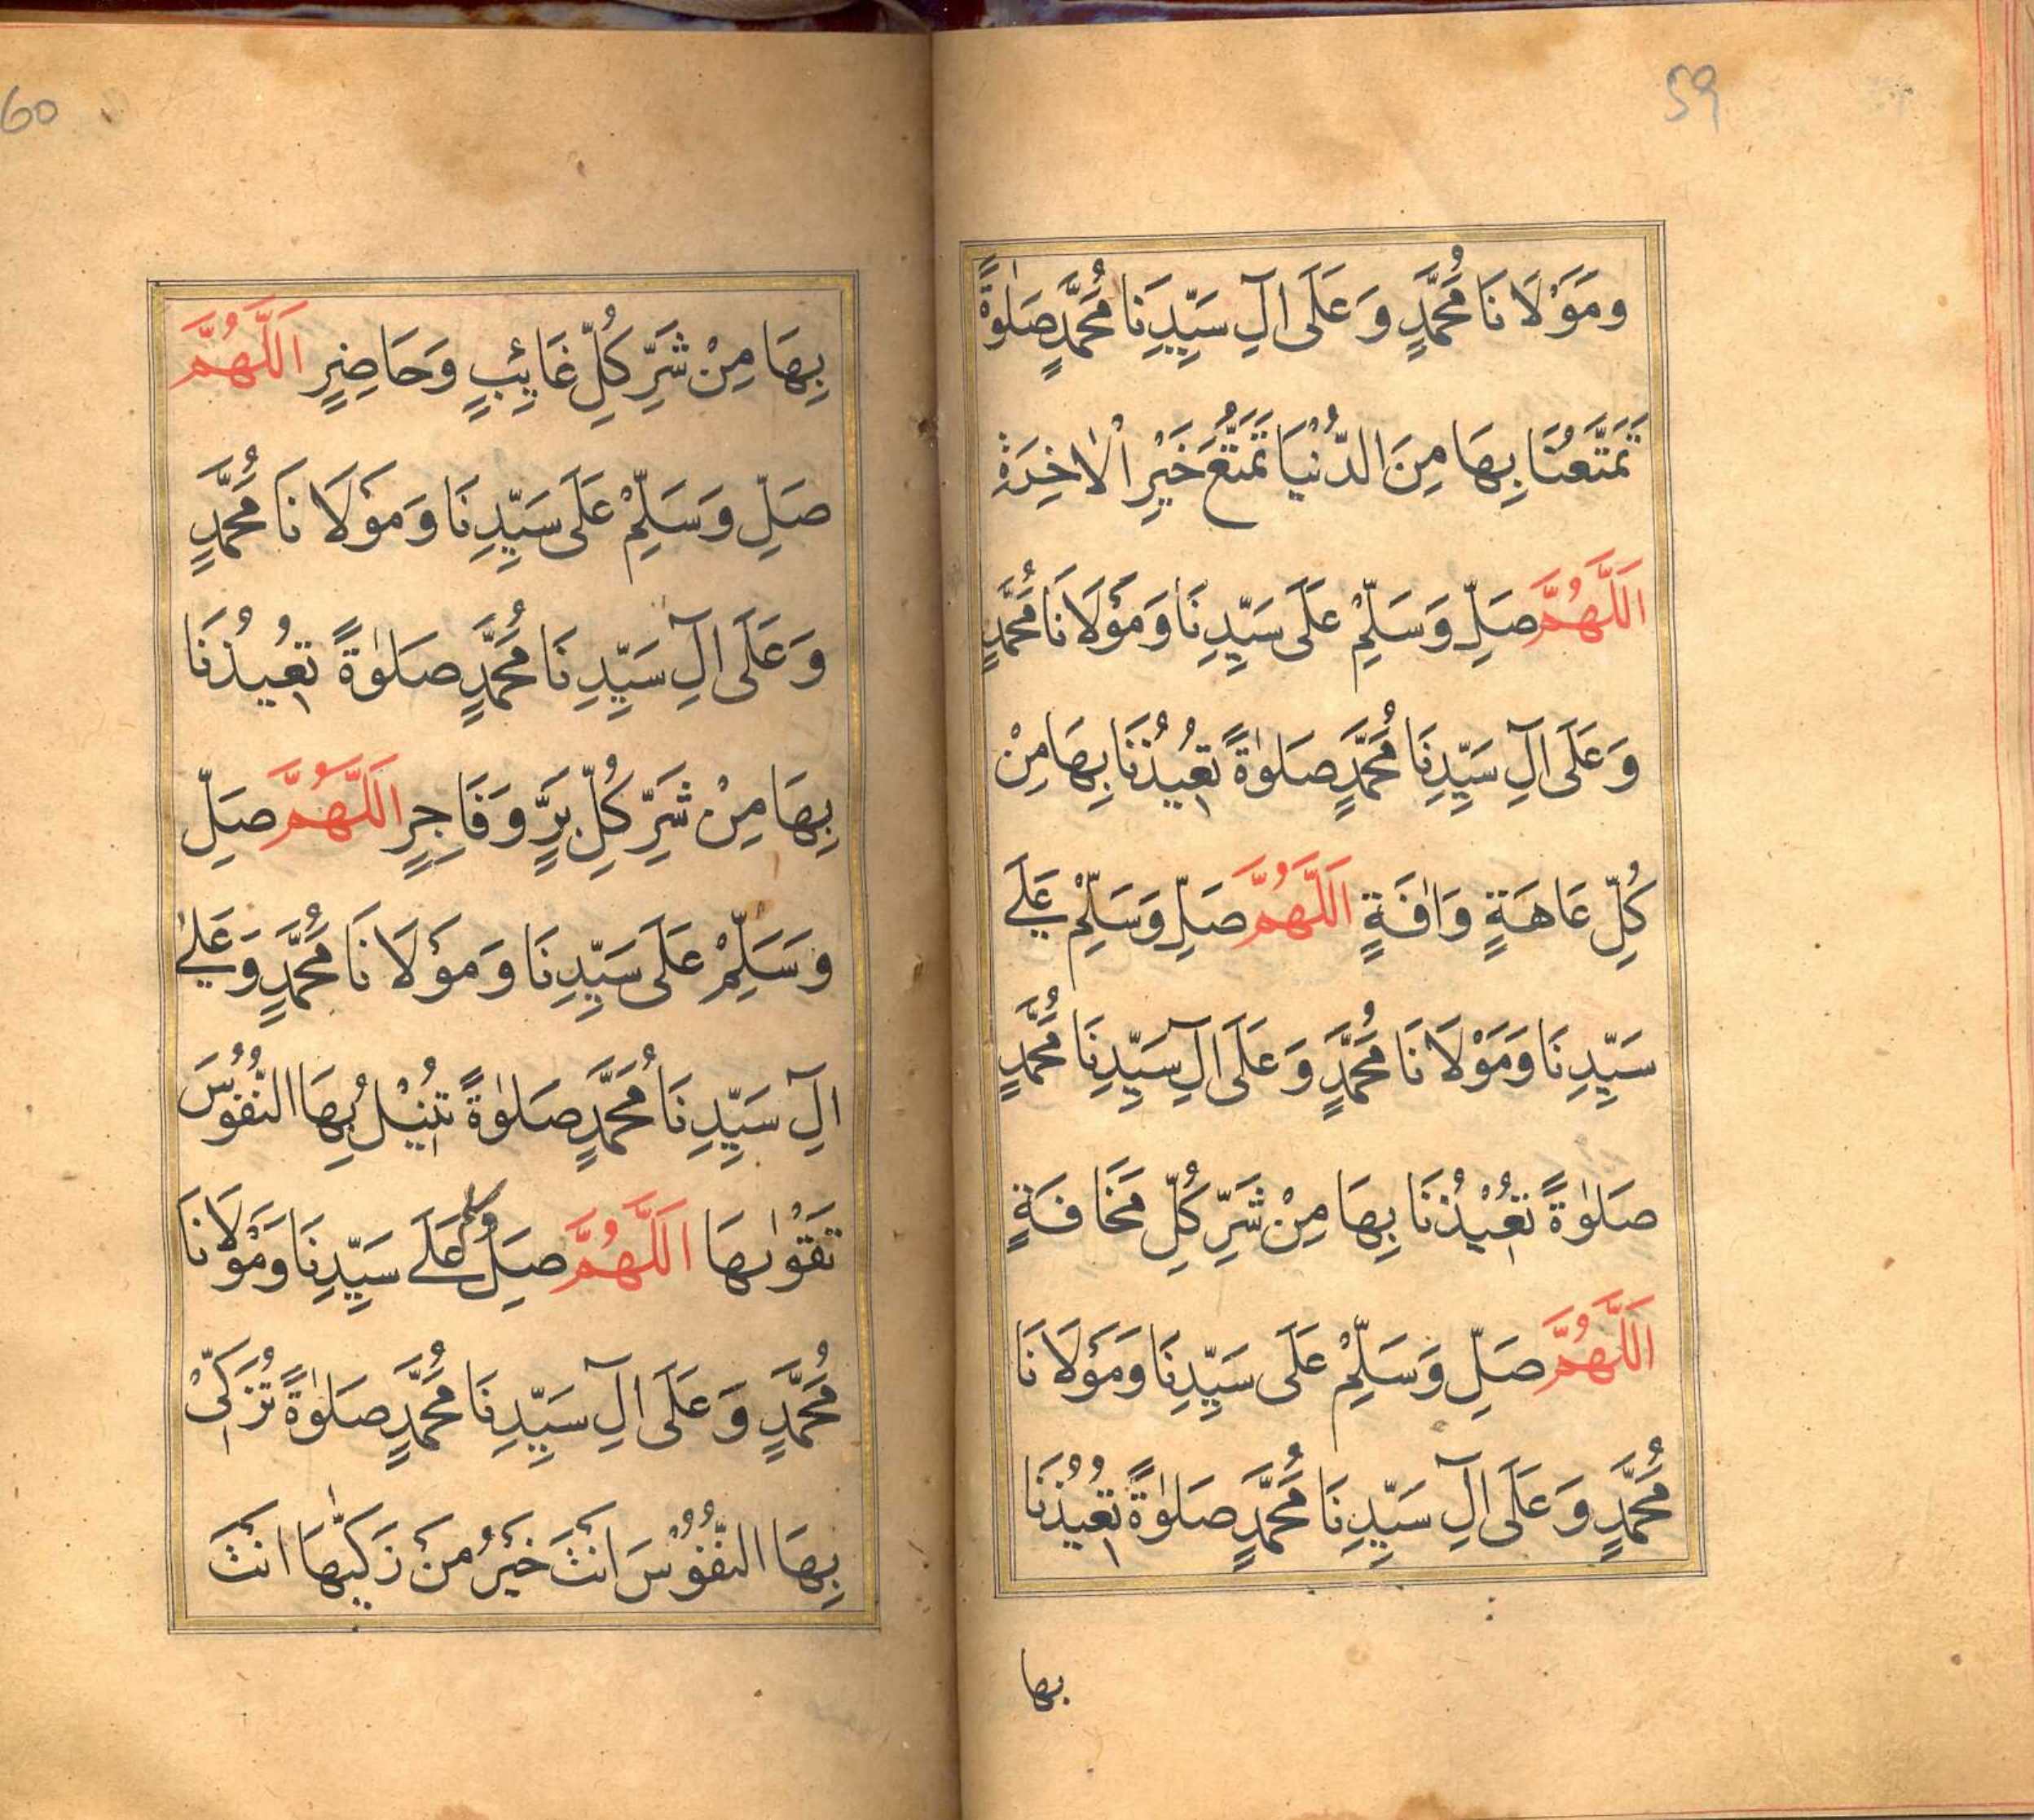 59
ومَوْلَانَا مُحَمَّدٍ وَعَلَى اٰلِ سَيِّدِنَا مُحَمَّدٍ صَلٰوةً
تَمَتَّعُنَا بِهَا مِنَ الدُّنْيَا تَمَتُّعَ خَيْرِ الْاٰخِرَةِ
اَللّٰهُمَّ صَلِّ وَسَلِّمْ عَلَى سَيِّدِنَا وَمَوْلَانَا مُحَمَّدٍ
وَعَلَى اٰلِ سَيِّدِنَا مُحَمَّدٍ صَلٰوةً تُعِيْذُنَا بِهَا مِنْ
كُلِّ عَاهَةٍ وَاٰفَةٍ اَللّٰهُمَّ صَلِّ وَسَلِّمْ عَلَے
سَيِّدِنَا وَمَوْلَانَا مُحَمَّدٍ وَعَلَى اٰلِ سَيِّدِنَا مُحَمَّدٍ
صَلٰوةً تُعِيْذُنَا بِهَا مِنْ شَرِّ كُلِّ مَخَافَةٍ
اَللّٰهُمَّ صَلِّ وَسَلِّمْ عَلَى سَيِّدِنَا وَمَوْلَانَا
مُحَمَّدٍ وَعَلَى اٰلِ سَيِّدِنَا مُحَمَّدٍ صَلٰوةً تُعِيْذُنَا
بها
60
بِهَا مِنْ شَرِّ كُلِّ غَائِبٍ وَحَاضِرٍ اَللّٰهُمَّ
صَلِّ وَسَلِّمْ عَلَى سَيِّدِنَا وَمَوْلَانَا مُحَمَّدٍ
وَعَلَى اٰلِ سَيِّدِنَا مُحَمَّدٍ صَلٰوةً تُعِيذُنَا
بِهَا مِنْ شَرِّ كُلِّ بَرٍّ وَفَاجِرٍ اَللّٰهُمَّ صَلِّ
وَسَلِّمْ عَلَى سَيِّدِنَا وَمَوْلَانَا مُحَمَّدٍ وَعَلٰے
اٰلِ سَيِّدِنَا مُحَمَّدٍ صَلٰوةً تُنِيْلُ بِهَا النُّفُوْسَ
تَقْوٰىهَا اَللّٰهُمَّ صَلِّ وسلم عَلَے سَيِّدِنَا وَمَوْلَانَا
مُحَمَّدٍ وَعَلَى اٰلِ سَيِّدِنَا مُحَمَّدٍ صَلٰوةً تُزَكِّىْ
بِهَا النُّفُوْسَ اَنْتَ خَيْرُ مَنْ زَكّٰيهَا اَنْتَ